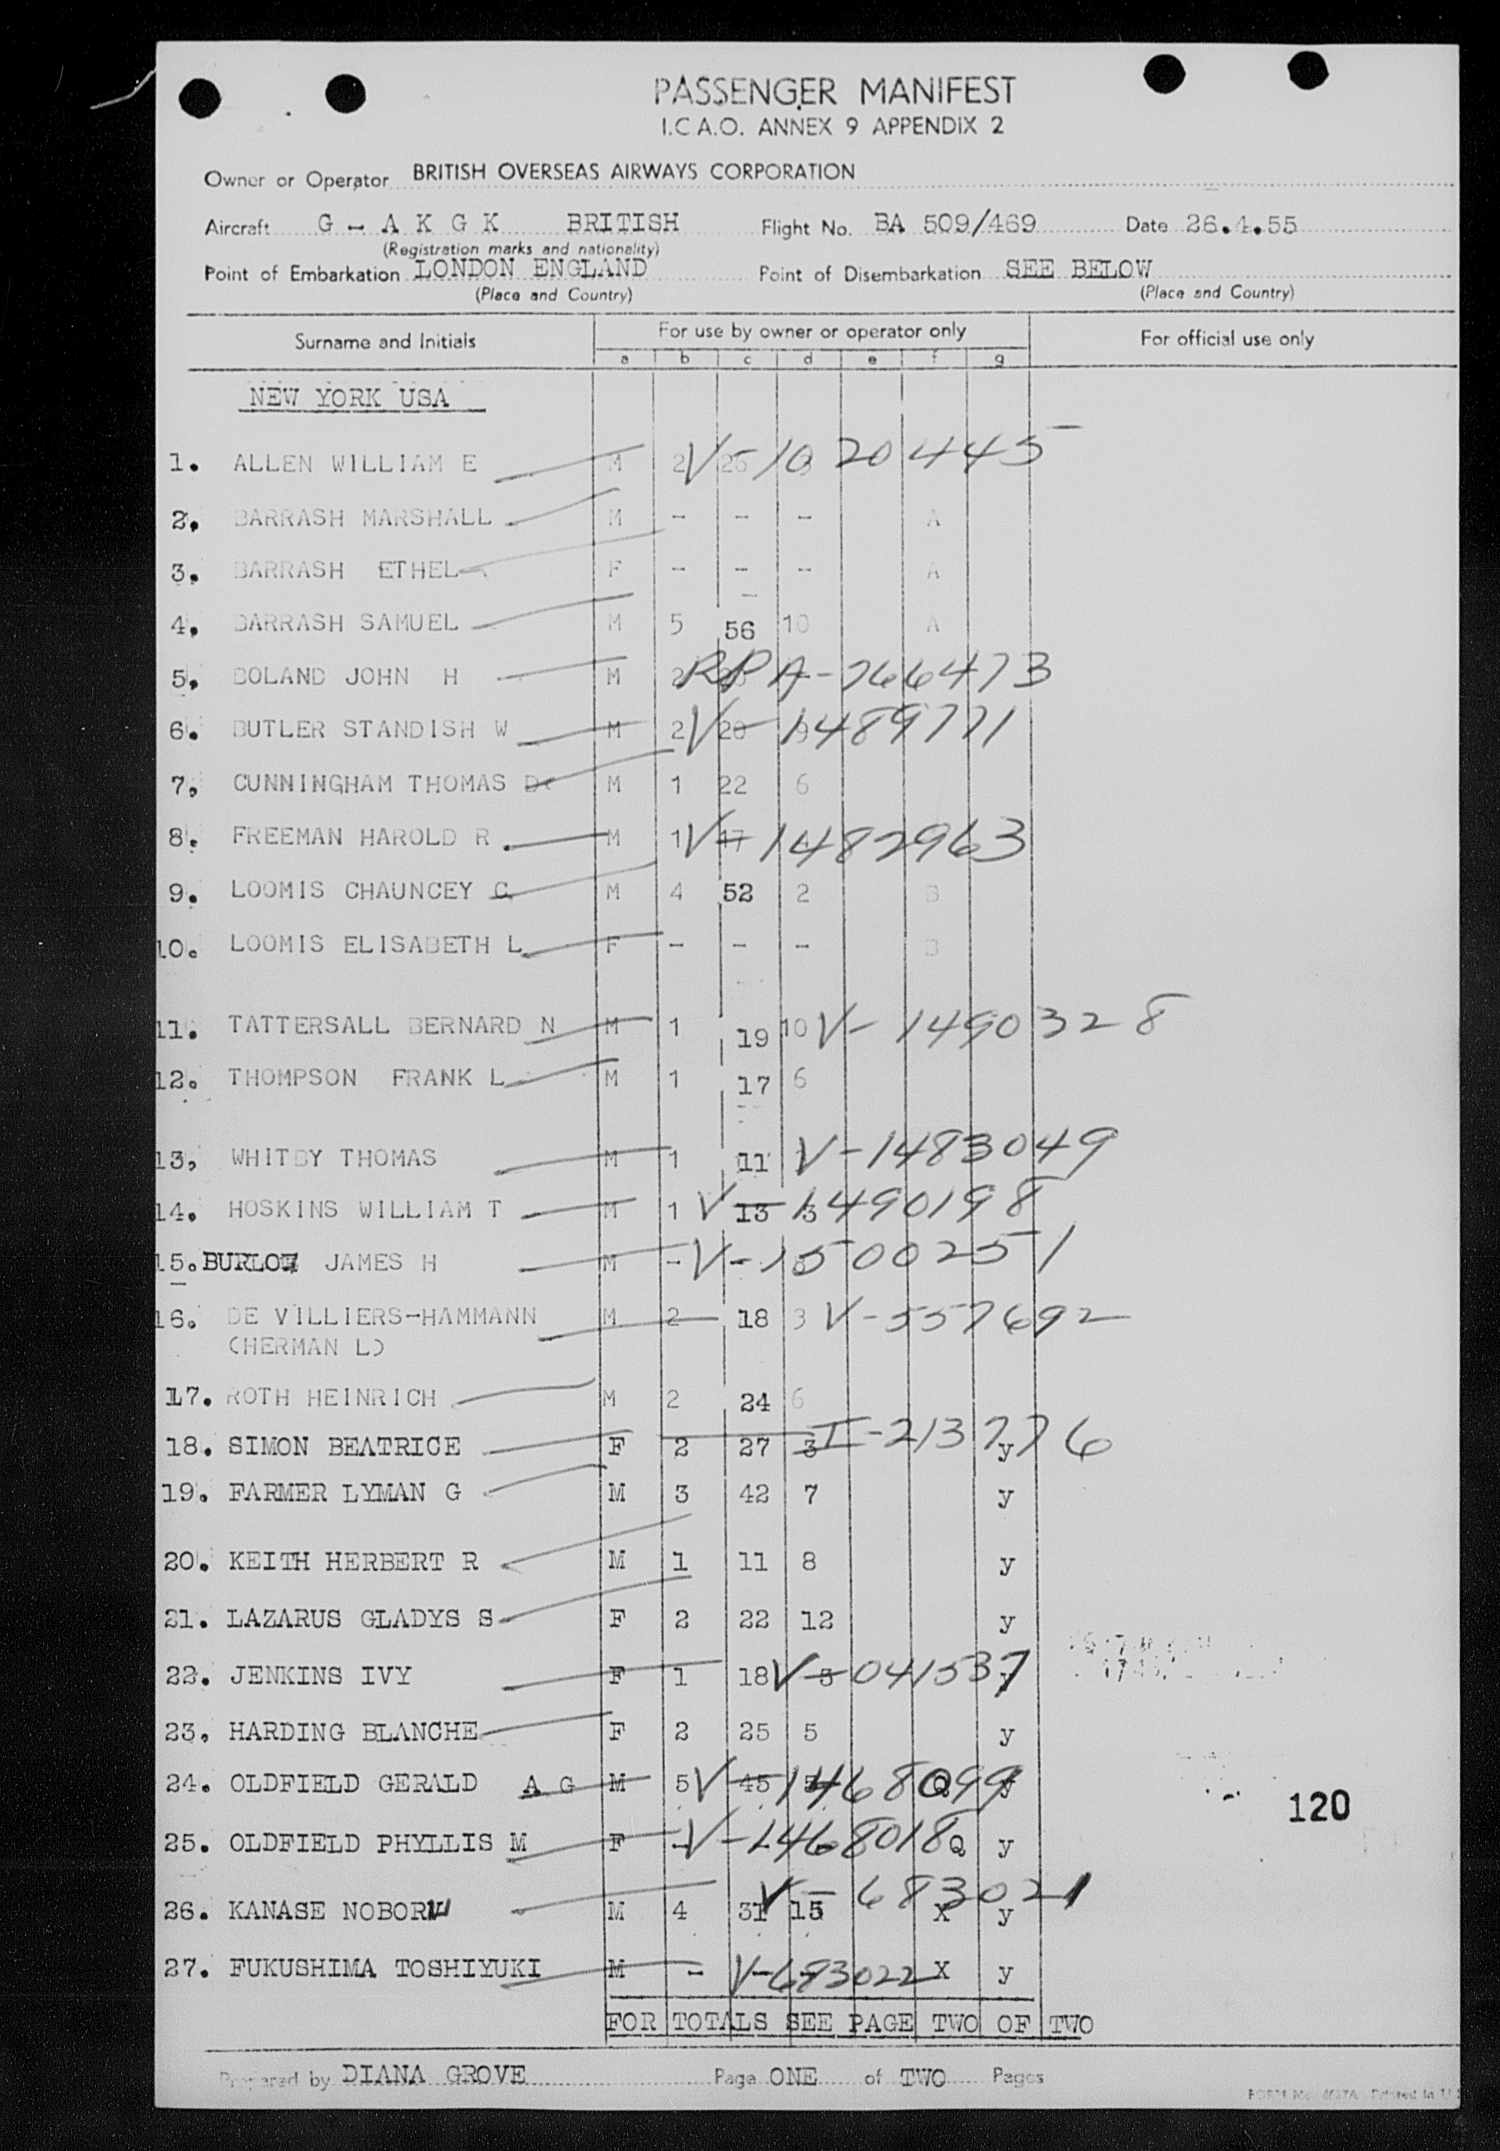 PASSENGER MANIFEST
I.C.A.O. ANNEX 9 APPENDIX 2
Owner or Operator BRITISH OVERSEAS AIRWAYS CORPORATION
Aircraft G - A K G K BRITISH Flight No. BA 509/469 Date 26.4.55
(Registration marks and nationality)
Point of Embarkation LONDON ENGLAND Point of Disembarkation SEE BELOW
(Place and Country) (Place and Country)
Surname and Initials For use by owner or operator only For official use only
a b c d e f g
NEW YORK USA
1. ALLEN WILLIAM E M 2 V-10204445
2. BARRASH MARSHALL M - - - A
3. BARRASH ETHEL F - - - A
4. BARRASH SAMUEL M 5 56 10 A
5. BOLAND JOHN H M 2 RPA-766473
6. BUTLER STANDISH W M 2 20 9 V-1489771
7. CUNNINGHAM THOMAS D M 1 22 6
8. FREEMAN HAROLD R. M 1 17 V-1482963
9. LOOMIS CHAUNCEY C M 4 52 2 B
10. LOOMIS ELISABETH L F - - - B
11. TATTERSALL BERNARD N M 1 19 10 V-1490328
12. THOMPSON FRANK L M 1 17 6
13. WHITBY THOMAS M 1 11 V-1483049
14. HOSKINS WILLIAM T M 1 13 3 V-1490198
15. BURLOE JAMES H M - - V-1500251
16. DE VILLIERS-HAMMANN M 2 18 3 V-557692
(HERMAN L)
17. ROTH HEINRICH M 2 24 6
18. SIMON BEATRICE F 2 27 3 I-213776 y
19. FARMER LYMAN G M 3 42 7 y
20. KEITH HERBERT R M 1 11 8 y
21. LAZARUS GLADYS S F 2 22 12 y
22. JENKINS IVY F 1 18 5 V-041537 y
23. HARDING BLANCHE F 2 25 5 y
24. OLDFIELD GERALD A G M 5 45 V-1468099 Q y
25. OLDFIELD PHYLLIS M F - - - V-1468018 Q y
26. KANASE NOBORU M 4 31 15 V-683021 X y
27. FUKUSHIMA TOSHIYUKI M - - - V-683022 X y
120
FOR TOTALS SEE PAGE TWO OF TWO
Prepared by DIANA GROVE Page ONE of TWO Pages